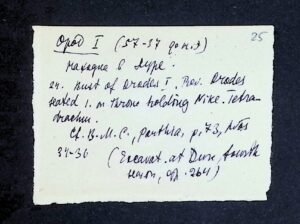 25
Ород I (57-37 до н.э)
находце в Дуре.
24. Bust of Orodes I. Rev. Orodes
seated l. on throne holding Nike. Tetra-
drachm.
Cf. B.M.C., Parthia, p. 73,
34-36 (Excavat. at Dura, fourth
season, 264)